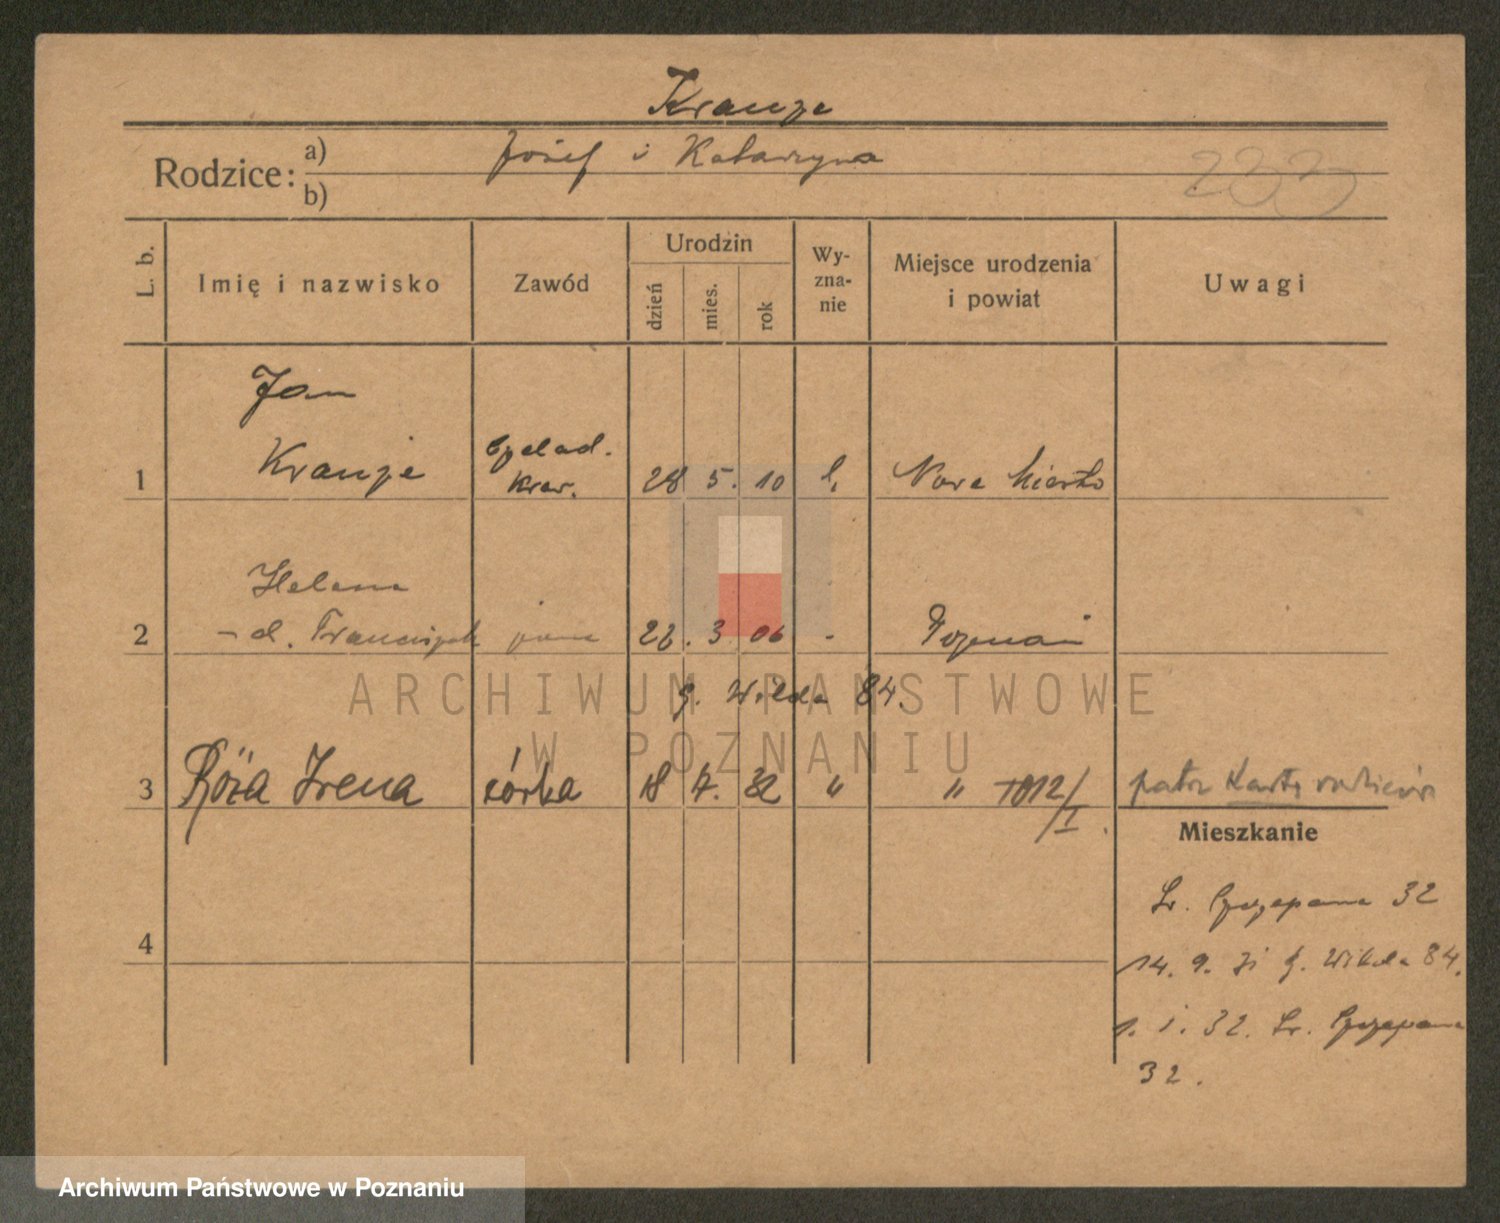 Kranze
Rodzice: a) Józef i Katarzyna
b)
233
L. b.
Imię i nazwisko
Zawód
Urodzin
dzień
mies.
rok
Wy-
zna-
nie
Miejsce urodzenia
i powiat
Uwagi
Jan
1 Kranze
czelad.
kraw.
28 5. 10
Nowe Miasto
Helena
2 - d. Franciszek
żona 22. 3 06 - Poznań
g. Wilda 84.
3 Róża Irena córka 18 4. 32 " " 1012/I.
patrz kartę rodziców
Mieszkanie
Św. Szczepana 32
4
14. 9. 31 g. Wilda 84.
1. 1. 32. Św. Szczepana
32.
ARCHIWUM PAŃSTWOWE
W POZNANIU
Archiwum Państwowe w Poznaniu